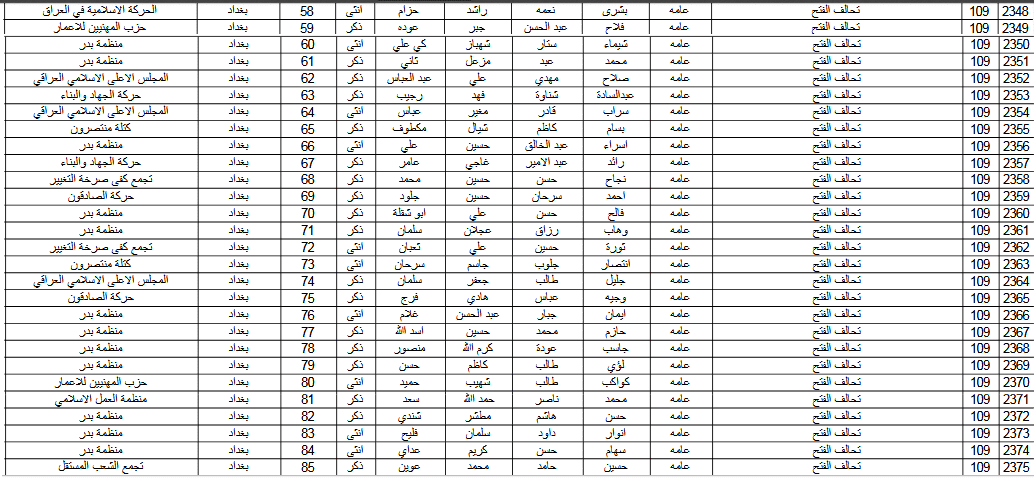 2348 109 تحالف الفتح عامه بشرى نعمه راشد حزام انثى 58 بغداد الحركة الاسلامية في العراق
2349 109 تحالف الفتح عامه فلاح عبد الحسن جبر عوده ذكر 59 بغداد حزب المهنيين للاعمار
2350 109 تحالف الفتح عامه شيماء ستار شهباز كي علي انثى 60 بغداد منظمة بدر
2351 109 تحالف الفتح عامه محمد عبد مزعل ثاني ذكر 61 بغداد منظمة بدر
2352 109 تحالف الفتح عامه صلاح مهدي علي عبد العباس ذكر 62 بغداد المجلس الاعلى الاسلامي العراقي
2353 109 تحالف الفتح عامه عبدالسادة شناوة فهد رجيب ذكر 63 بغداد حركة الجهاد والبناء
2354 109 تحالف الفتح عامه سراب قادر مغير عباس انثى 64 بغداد المجلس الاعلى الاسلامي العراقي
2355 109 تحالف الفتح عامه بسام كاظم شيال مكطوف ذكر 65 بغداد كتلة منتصرون
2356 109 تحالف الفتح عامه اسراء عبد الخالق حسين علي انثى 66 بغداد منظمة بدر
2357 109 تحالف الفتح عامه رائد عبد الامير غاجي عامر ذكر 67 بغداد حركة الجهاد والبناء
2358 109 تحالف الفتح عامه نجاح حسن حسين محمد ذكر 68 بغداد تجمع كفى صرخة التغيير
2359 109 تحالف الفتح عامه احمد سرحان حسين جلود ذكر 69 بغداد حركة الصادقون
2360 109 تحالف الفتح عامه فالح حسن علي ابو شقلة ذكر 70 بغداد منظمة بدر
2361 109 تحالف الفتح عامه وهاب رزاق عجلان سلمان ذكر 71 بغداد منظمة بدر
2362 109 تحالف الفتح عامه ثورة حسين علي ثعبان انثى 72 بغداد تجمع كفى صرخة التغيير
2363 109 تحالف الفتح عامه انتصار جلوب جاسم سرحان انثى 73 بغداد كتلة منتصرون
2364 109 تحالف الفتح عامه جليل طالب جعفر سلمان ذكر 74 بغداد المجلس الاعلى الاسلامي العراقي
2365 109 تحالف الفتح عامه وجيه عباس هادي فرج ذكر 75 بغداد حركة الصادقون
2366 109 تحالف الفتح عامه ايمان جبار عبد الحسن غلام انثى 76 بغداد منظمة بدر
2367 109 تحالف الفتح عامه حازم محمد حسين اسد الله ذكر 77 بغداد منظمة بدر
2368 109 تحالف الفتح عامه جاسب عودة كرم الله منصور ذكر 78 بغداد منظمة بدر
2369 109 تحالف الفتح عامه لؤي طالب كاظم حسن ذكر 79 بغداد منظمة بدر
2370 109 تحالف الفتح عامه كواكب طالب شهيب حميد انثى 80 بغداد حزب المهنيين للاعمار
2371 109 تحالف الفتح عامه محمد ناصر حمد الله سعد ذكر 81 بغداد منظمة العمل الاسلامي
2372 109 تحالف الفتح عامه حسن هاشم مطشر شندي ذكر 82 بغداد منظمة بدر
2373 109 تحالف الفتح عامه انوار داود سلمان فليح انثى 83 بغداد منظمة بدر
2374 109 تحالف الفتح عامه سهام حسن كريم عداي انثى 84 بغداد منظمة بدر
2375 109 تحالف الفتح عامه حسين حامد محمد عوين ذكر 85 بغداد تجمع الشعب المستقل